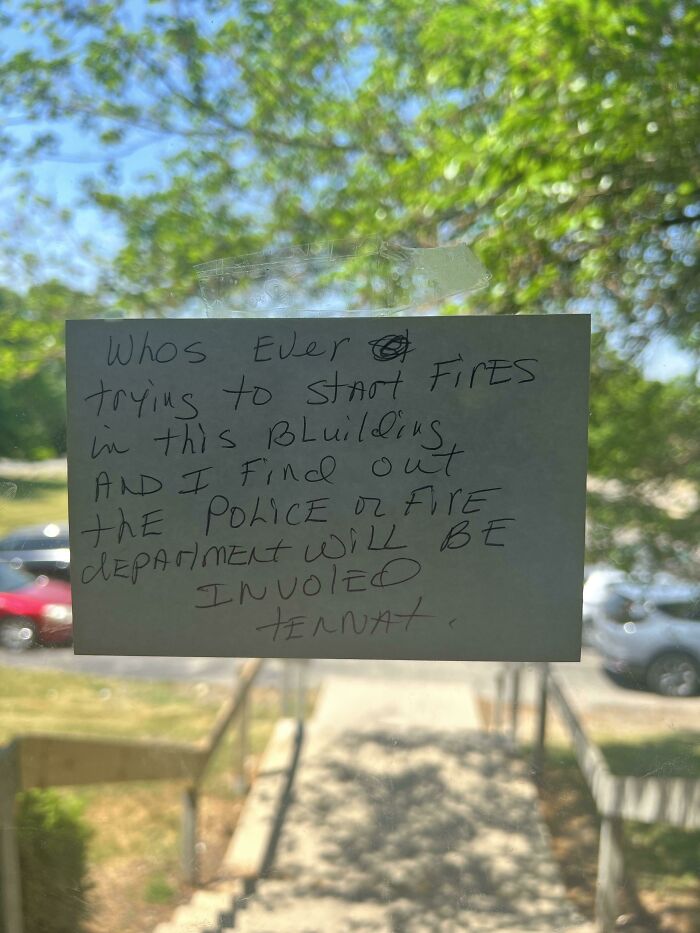 Whos Ever
trying to start FirES
in this BLuilding
AND I Find out
tHE POLICE or FirE
dEPArtMENt WiLL BE
INVOlED
tENNAt.